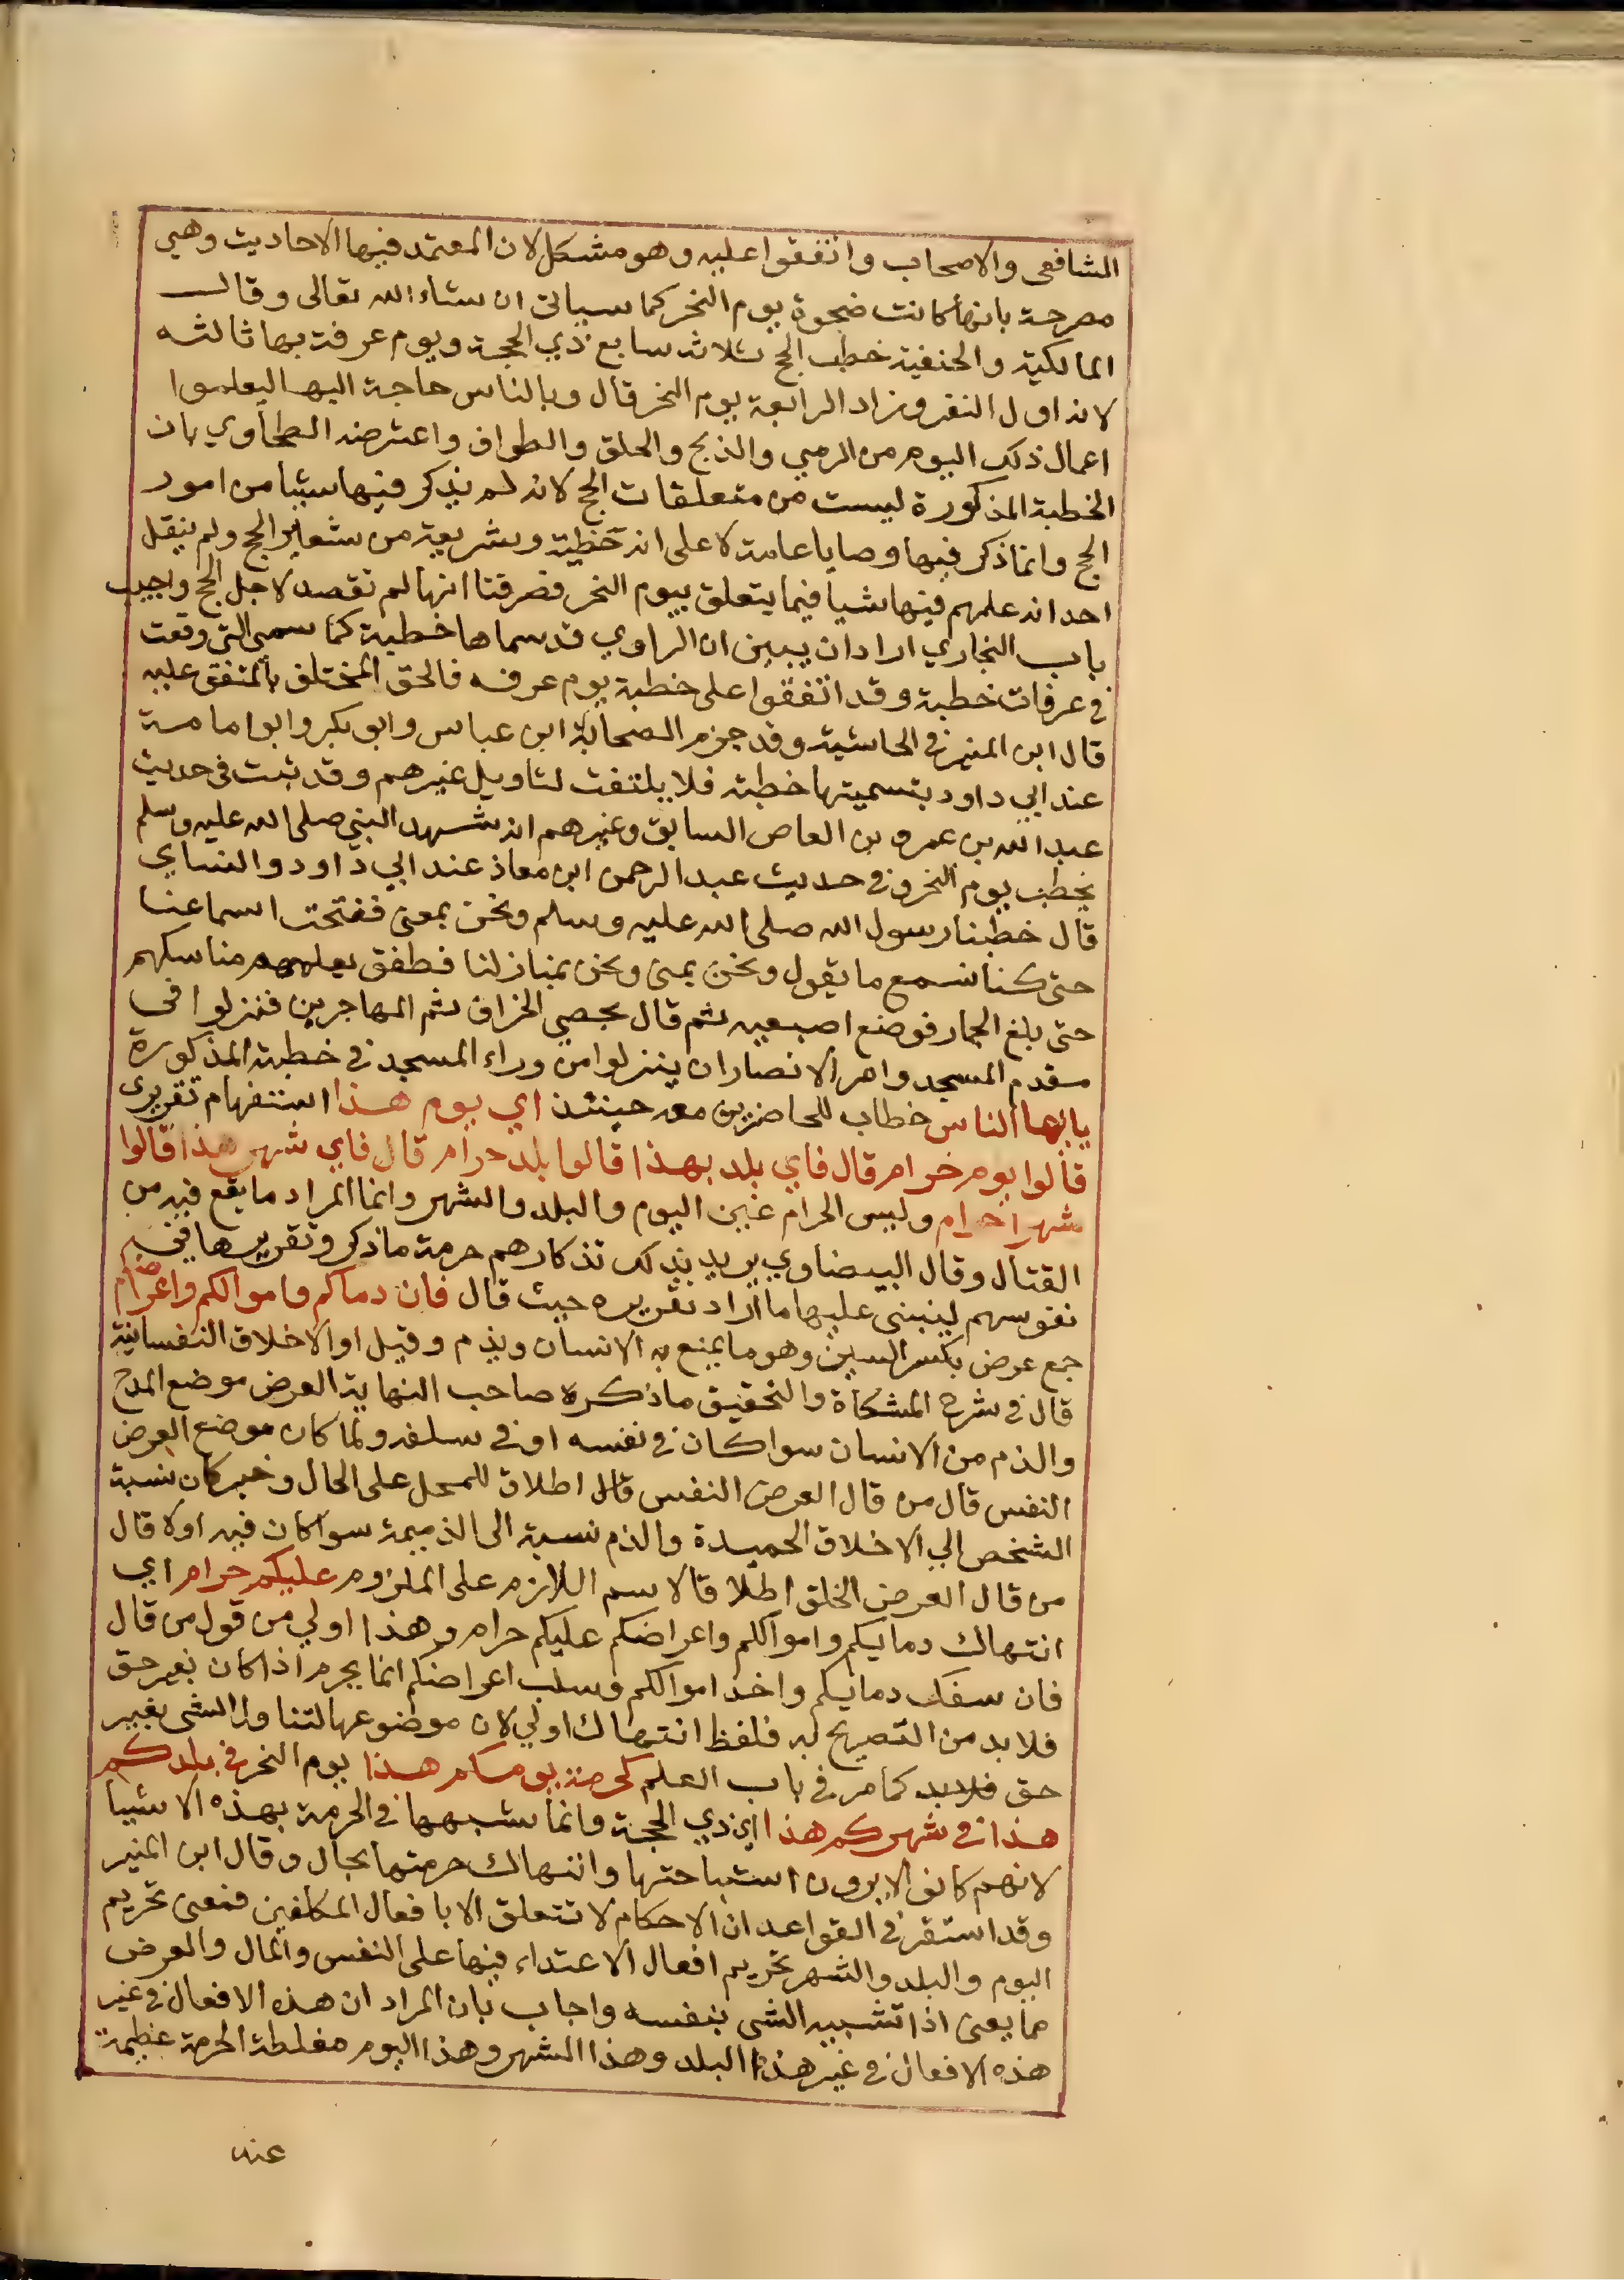 الشافعى والاصحاب واتفقوا عليه وهو مشكل لان المعتمد فيها الاحاديث وهي
مصرحة بانها كانت ضحوة يوم النحر كما سياتى ان شاء الله تعالى وقالـ
المالكية والحنفية خطب الحج ثلاث سابع ذي الحجة ويوم عرفة بها ثالثه
لانه اول النفر وزاد الرابعة يوم النحر قال وبالناس حاجة اليها ليعلموا
اعمال ذلك اليوم من الرمي والذبح والحلق والطواف واعترضه الطحاوي بان
الخطبة المذكورة ليست من متعلقات الحج لانه لم يذكر فيها شيئا من امور
الحج وانما ذكر فيها وصايا عامة لا على انه خطبة وشريعة من شعاير الحج ولم ينقل
احد انه علمهم فيها شيا فيما يتعلق بيوم النحر فعرفنا انها لم تقصد لاجل الحج واجيب
بان البخاري اراد ان يبين ان الراوي قد سماها خطبة كما سمى التى وقعت
في عرفات خطبة وقد اتفقوا على خطبة يوم عرفه فالحق المختلف بالمتفق عليه
قال ابن المنير في الحاشية وقد جزم الصحابة ابن عباس وابو بكر وابو امامة
عند ابي داود بتسميتها خطبة فلا يلتفت لتاويل غيرهم وقد ثبت فى حديث
عبد الله بن عمرو بن العاص السابق وغيرهم انه شهد النبي صلى الله عليه وسلم
يخطب يوم النحر وفي حديث عبد الرحمن ابن معاذ عند ابي داود والنساي
قال خطبنا رسول الله صلى الله عليه وسلم ونحن بمعنى ففتحت اسماعنا
حتى كنا نسمع ما يقول ونحن بمنى ونحن بمنازلنا فطفق يعلمهم مناسكهم
حتى بلغ الجمار فوضع اصبعيه ثم قال بحصى الخزاف ثم المهاجرين فنزلوا فى
مقدم المسجد وامر الانصار ان ينزلوا من وراء المسجد في خطبة المذكورة
يايها الناس خطاب للحاضرين معه حينئذ اي يوم هذا استفهام تقريرى
قالوا يوم حرام قال فاي بلد بهذا قالوا بلد حرام قال فاي شهر هذا قالوا
شهر احرام وليس الحرام عين اليوم والبلد والشهر وانما المراد ما يقع فيه من
القتال وقال البيضاوي يريد بذلك تذكارهم حرمة ما ذكر وتقريرها في
نفوسهم ليبنى عليها ما اراد تقريره حيث قال فان دماكم واموالكم واعراضكم
جمع عرض بكسر السين وهو ما يمنع به الانسان ويذم وقيل او الاخلاق النفسانية
قال في شرح المشكاة والتحقيق ما ذكره صاحب النهاية العرض موضع المدح
والذم من الانسان سوا كان في نفسه او في سلفه ولما كان موضع العرض
النفس قال من قال العرض النفس قال اطلاق للمحل على الحال وخبر كان نسبة
الشخص الي الاخلاق الحميدة والذم نسبة الى الذميمة سوا كان فيه اولا قال
من قال العرض الخلق اطلا قا لاسم اللازم على الملزوم عليكم حرام اي
انتهاك دمايكم واموالكم واعراضكم عليكم حرام وهذا اولي من قول من قال
فان سفك دمايكم واخذ اموالكم وسلب اعراضكم انما يحرم اذا كان بغير حق
فلا بد من التصريح به فلفظ انتهاك اولي لان موضوعها لتناول الشى بغيير
حق فلابد كما مر في باب العلم كحرمة يومكم هذا يوم النحر في بلدكم
هذا في شهركم هذا اي ذي الحجة وانما شبهها في الحرمة بهذه الاشيا
لانهم كانوا لا يرون استباحتها وانتهاك حرمتها بحال وقال ابن المنير
وقد استقر في القواعد ان الاحكام لا تتعلق الا با فعال المكلفين فمعنى تحريم
اليوم والبلد والشهر تحريم افعال الاعتداء فيها على النفس والمال والعرض
فما يعنى اذا تشبيه الشى بنفسه واجاب بان المراد ان هذه الافعال في غير
هذه الافعال في غير هذا البلد وهذا الشهر وهذا اليوم مغلظة الحرمة عظيمة
عند